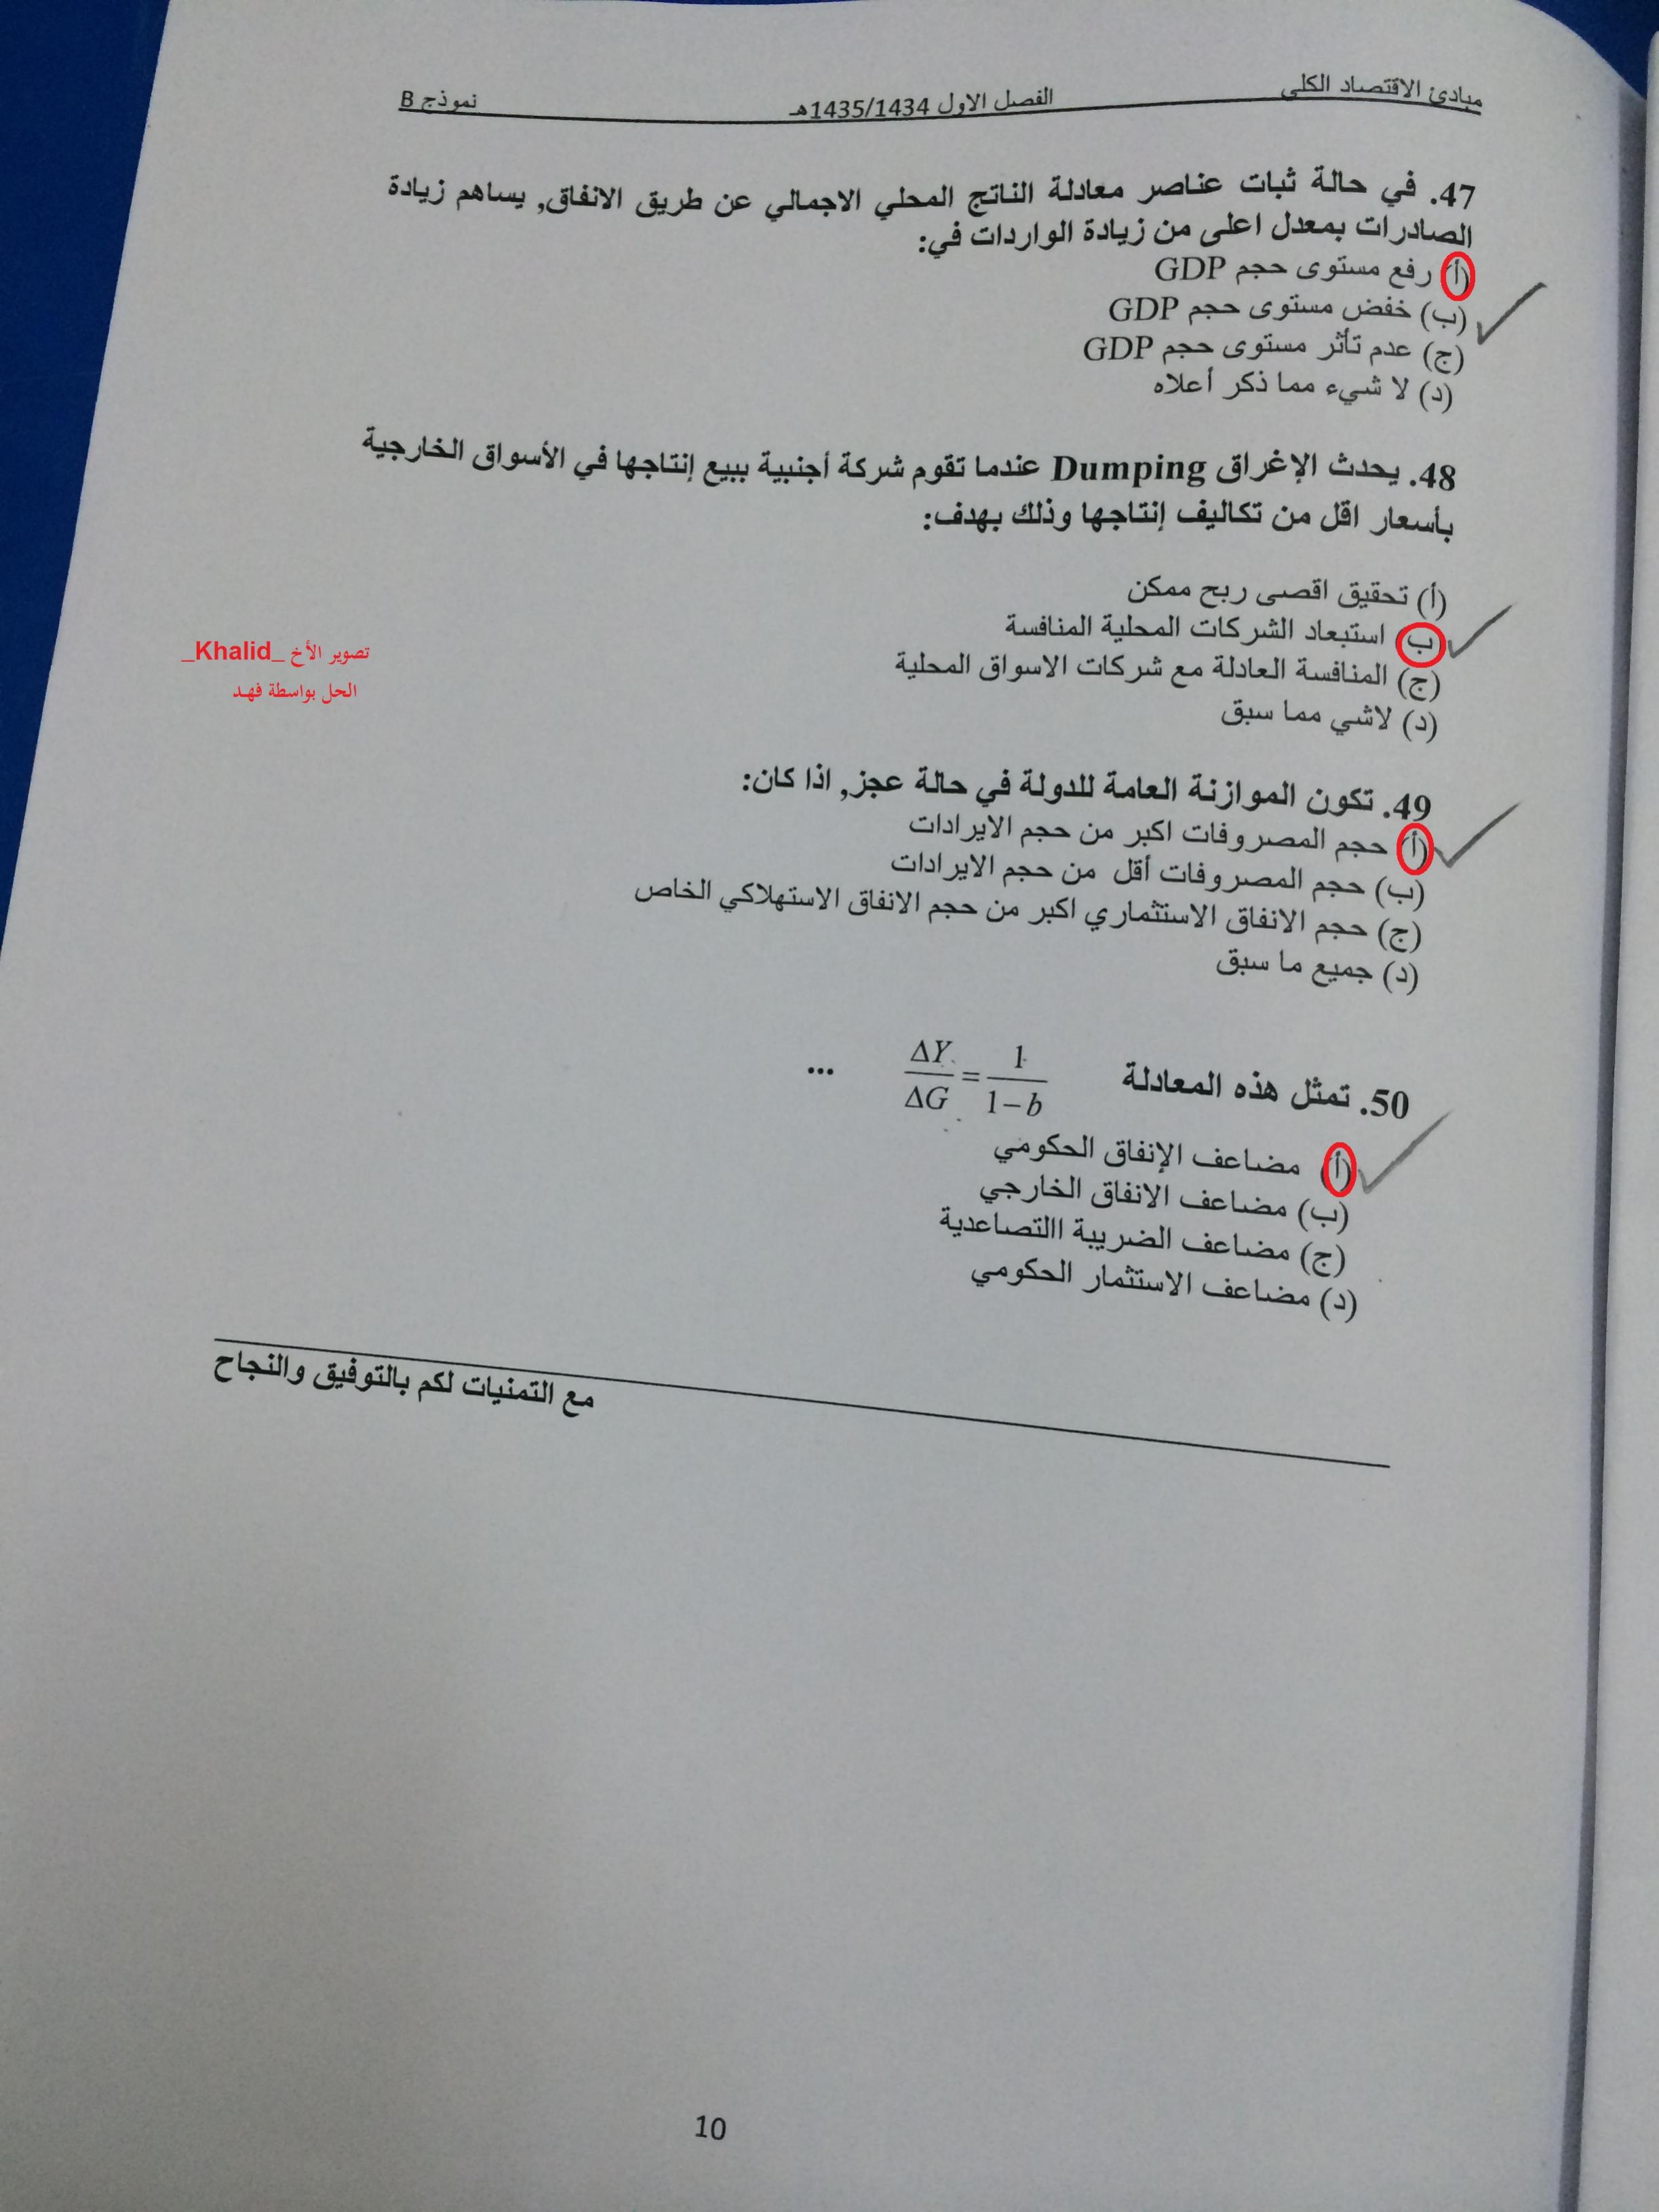 مبادئ الاقتصاد الكلي الفصل الاول 1435/1434هـ نموذج B
47. في حالة ثبات عناصر معادلة الناتج المحلي الاجمالي عن طريق الانفاق, يساهم زيادة
الصادرات بمعدل اعلى من زيادة الواردات في:
(أ) رفع مستوى حجم GDP
(ب) خفض مستوى حجم GDP
(ج) عدم تأثر مستوى حجم GDP
(د) لا شيء مما ذكر أعلاه
48. يحدث الإغراق Dumping عندما تقوم شركة أجنبية ببيع إنتاجها في الأسواق الخارجية
بأسعار اقل من تكاليف إنتاجها وذلك بهدف:
(أ) تحقيق اقصى ربح ممكن
(ب) استبعاد الشركات المحلية المنافسة
(ج) المنافسة العادلة مع شركات الاسواق المحلية
(د) لاشي مما سبق
تصوير الأخ _Khalid_
الحل بواسطة فهـد
49. تكون الموازنة العامة للدولة في حالة عجز, اذا كان:
(أ) حجم المصروفات اكبر من حجم الايرادات
(ب) حجم المصروفات أقل من حجم الايرادات
(ج) حجم الانفاق الاستثماري اكبر من حجم الانفاق الاستهلاكي الخاص
(د) جميع ما سبق
50. تمثل هذه المعادلة ΔY/ΔG = 1/(1−b) ...
(أ) مضاعف الإنفاق الحكومي
(ب) مضاعف الانفاق الخارجي
(ج) مضاعف الضريبة االتصاعدية
(د) مضاعف الاستثمار الحكومي
مع التمنيات لكم بالتوفيق والنجاح
10